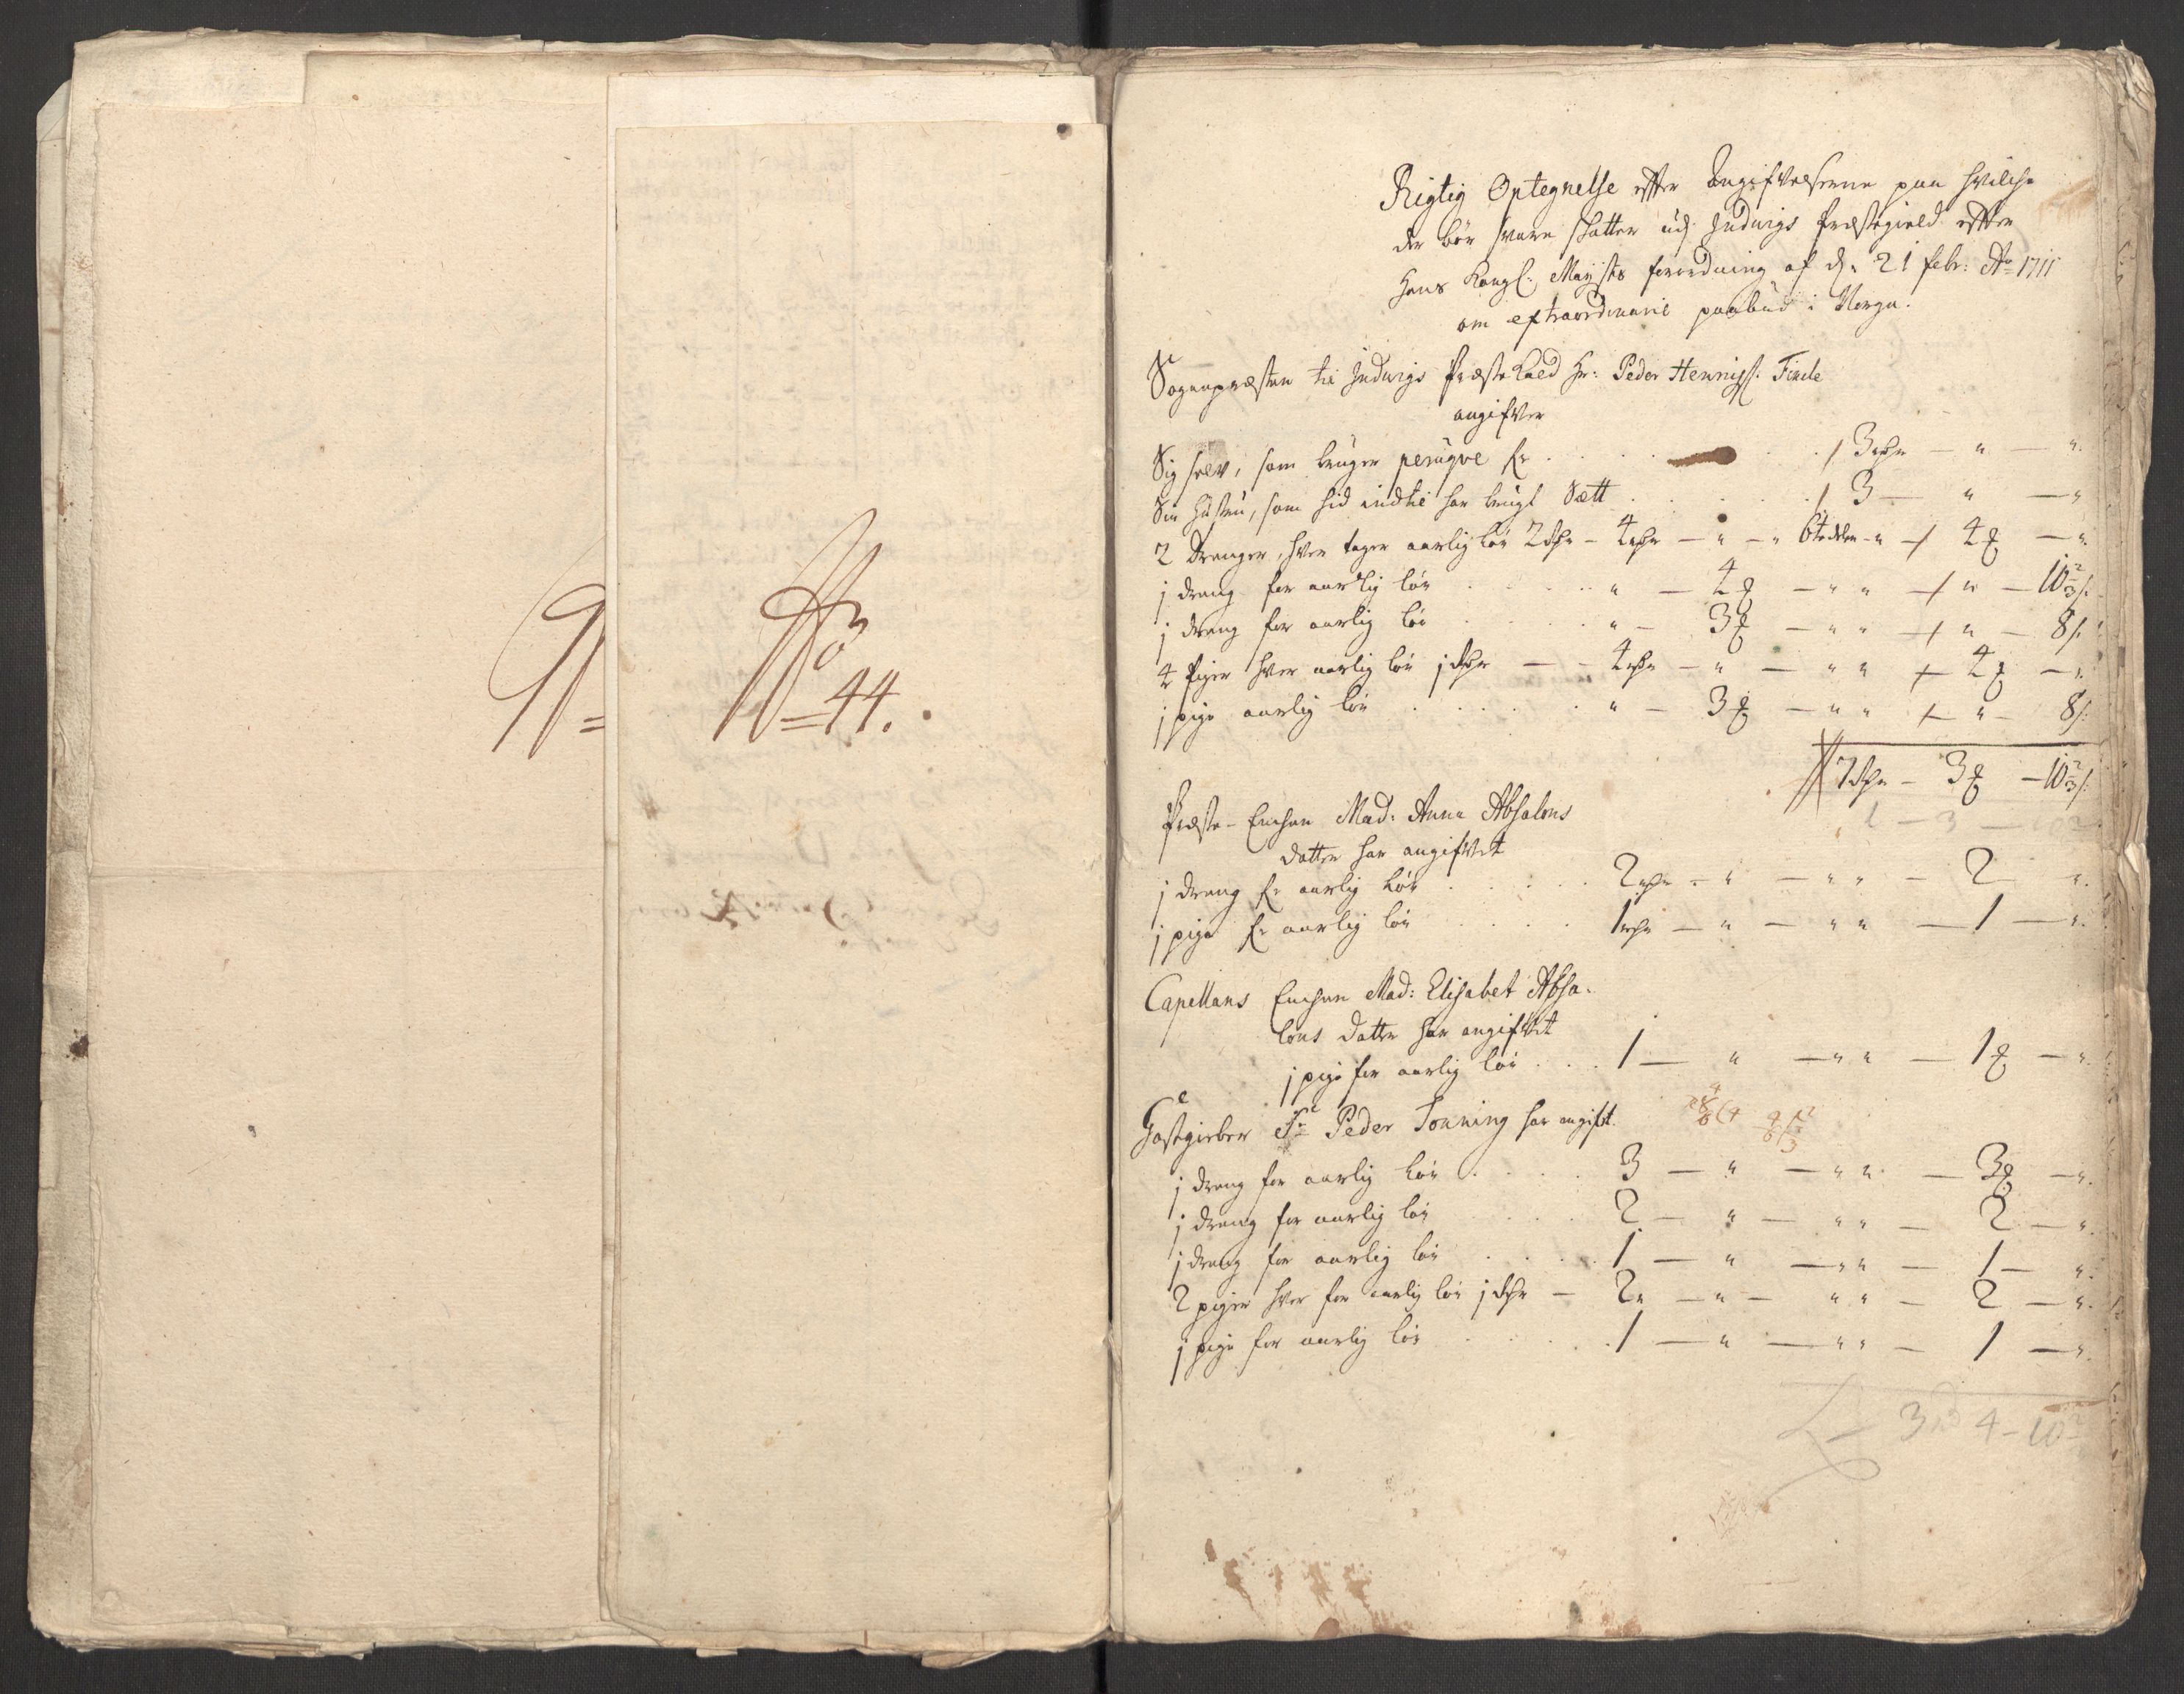 No
44.
Rigtig Optegnelse effter Angifvelserne paa hvilche
der bør svare skatter udj Indvigs Præstegield effter
Hans Kongl: Mayjts forordning af d: 21 febr: Ao 1711
om extraordinarie paabud i Norge.
Sognepræsten til Indvigs Præste Kald Hr: Peder Hennigs: Finde
angifver
Sig selv, som bruger peruqve for . . . . . 3 rdr — " — "
Sin Hustru, som hid indtil har brugt Sætt . . . . . 3 — " — "
2 Drenger, hver tager aarlig løn 2 rdr – 4 rdr — " – " 6te delen – " 4 ₰ — "
j dreng for aarlig løn . . . . . " — 4 ₰ — " " — " — 10⅔ s:
j dreng for aarlig løn . . . . . " — 3 ₰ — " " — " — 8 s:
4 Piger hver aarlig løn j rdr — 4 rdr — " — " " 4 ₰ — "
j pige aarlig løn . . . . . " — 3 ₰ — " " — " — 8 s:
7 rdr – 3 ₰ — 10⅔ s:
1 — 3 — 10⅔
Præste-Enchen Mad: Anna Absalons
datter har angifvet
j dreng for aarlig Løn . . . . . 2 rdr – " — " " — 2 "
j pige for aarlig løn . . . . 1 rdr — " — " " — 1 — "
Capellans Enchen Mad: Elisabet Absa-
lons datter har angifvet
j pige for aarlig løn . . . 1 — " — " " — 1 ₰ — "
Gæstgieber Sr Peder Tonning har angift.
j dreng for aarlig Løn . . . . 3 — " — " " — 3 ₰ — "
j dreng for aarlig løn . . . . 2 — " — " " — 2 — "
j dreng for aarlig løn . . . . 1 — " — " " — 1 — "
2 piger hver for aarlig løn j rdr — 2 " — " — " " — 2 — "
j pige for aarlig løn . . . . . 1 — " — " " — 1 — "
3 4 – 10⅔